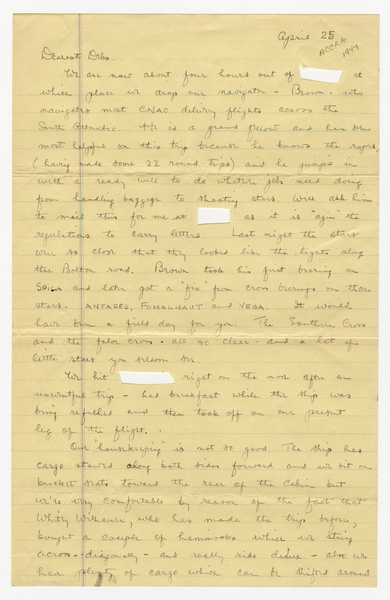 April 25
ACCRA
1944
Dearest Dibs.
We are now about four hours out of at
which place we drop our navigator - Brown - who
navigates most CNAC delivery flights across the
South Atlantic. He is a grand fellow and has been
most helpful on this trip because he knows the ropes,
(having made some 22 round trips) and he jumps in
with a ready will to do whatever jobs need doing
from handling baggage to shooting stars. Will ask him
to mail this for me at as it is "agin" the
regulations to carry letters. Last night the stars
were so clear that they looked like the lights along
the Bolton road. Brown took his first bearing on
SPICA and later got a "fix" from cross bearings on three
stars. ANTARES, FOMALHAUT and VEGA. It would
have been a field day for you. The Southern Cross
and the false cross - all so clear - and a lot of
little stars you seldom see.
We hit right on the nose after an
uneventful trip - had breakfast while the ship was
being refueled and then took off on our present
leg of the flight.
Our "housekeeping" is not so good. The ship has
cargo stowed along both sides forward and we sit on
bucket seats toward the rear of the cabin but
we're very comfortable by reason of the fact that
Whitey Willauer, who has made the trip before,
bought a couple of hammocks which we string
across - diagonally - and really ride deluxe - also we
have plenty of cargo which can be shifted around